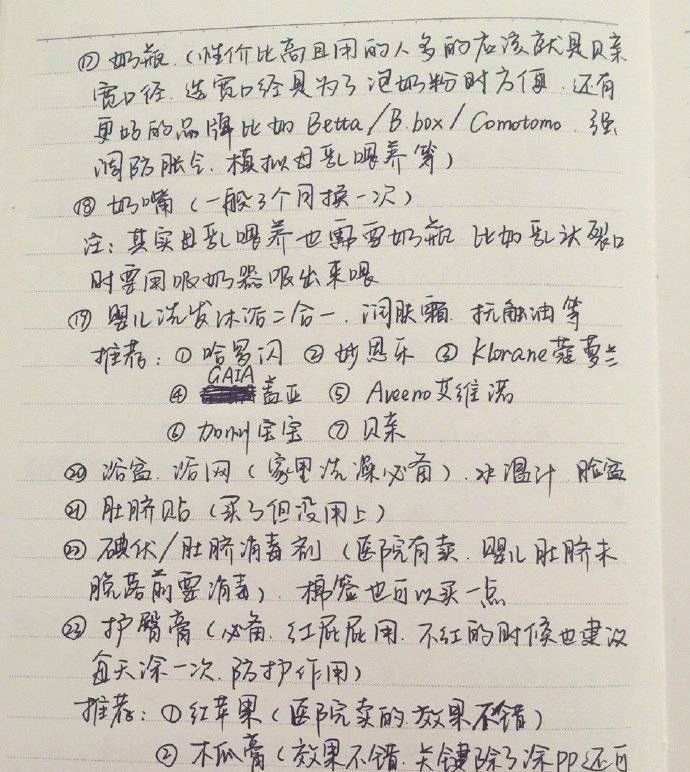 ⑰ 奶瓶（性价比高且用的人多的应该就是贝亲
宽口径，选宽口径是为了泡奶粉时方便，还有
更好的品牌比如 Betta/B.box/Comotomo，强
调防胀气，模拟母乳喂养等）
⑱ 奶嘴（一般3个月换一次）
注：其实母乳喂养也需要奶瓶 比如乳头裂口
时要用吸奶器吸出来喂
⑲ 婴儿洗发沐浴二合一，润肤霜，抚触油等
推荐：① 哈罗闪 ② 妙思乐 ③ Klorane蔻萝兰
④ GAIA 盖亚 ⑤ Aveeno艾维诺
⑥ 加州宝宝 ⑦ 贝亲
⑳ 浴盆，浴网（家里洗澡必备），水温计，脸盆
㉑ 肚脐贴（买了但没用上）
㉒ 碘伏/肚脐消毒剂（医院有卖，婴儿肚脐未
脱落前要消毒），棉签也可以买一点
㉓ 护臀膏（必备，红屁屁用，不红的时候也建议
每天涂一次，防护作用）
推荐：① 红苹果（医院卖的，效果不错）
② 木瓜膏（效果不错，关键除了涂PP还可